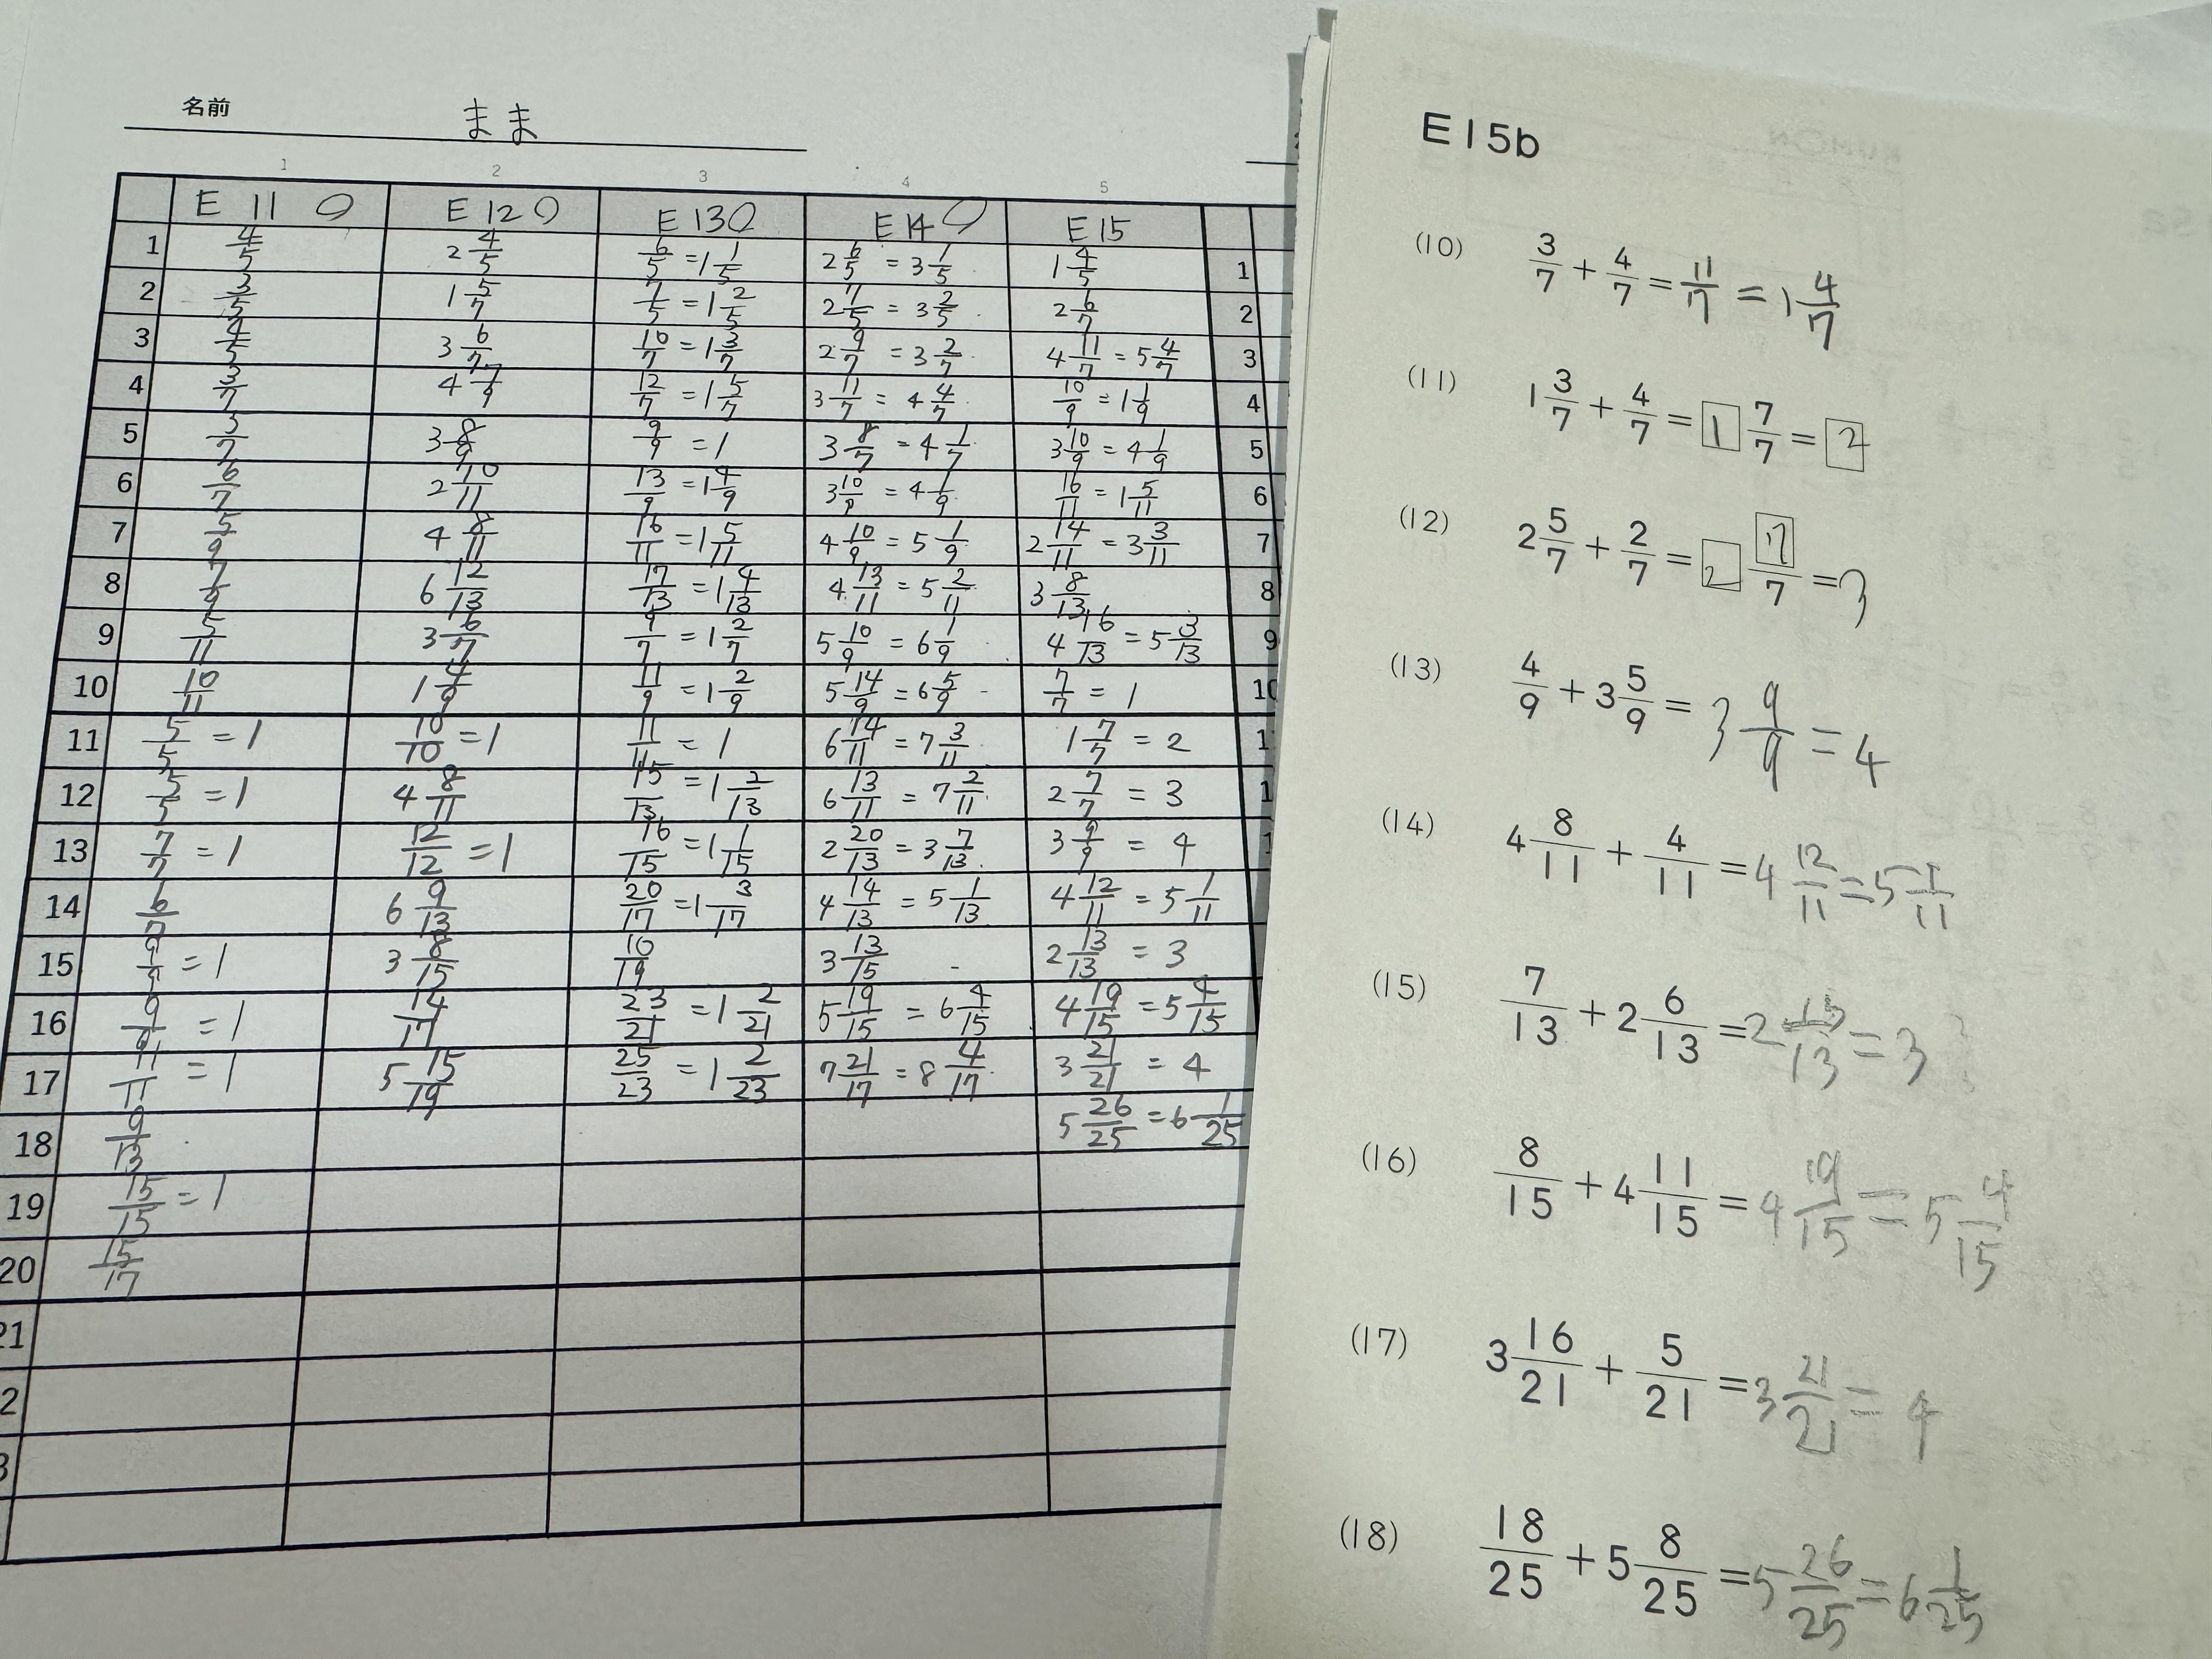 名前 まま
1 2 3 4 5
E 11 E 12 E 13 E 14 E 15
1 4/5 2 4/5 6/5 = 1 1/5 2 6/5 = 3 1/5 1 4/5 1
2 3/5 1 5/7 7/5 = 1 2/5 2 7/5 = 3 2/5 2 6/7 2
3 4/5 3 6/7 10/7 = 1 3/7 2 9/7 = 3 2/7 4 11/7 = 5 4/7 3
4 3/7 4 7/9 12/7 = 1 5/7 3 11/7 = 4 4/7 10/9 = 1 1/9 4
5 3/7 3 8/9 9/9 = 1 3 8/7 = 4 1/7 3 10/9 = 4 1/9 5
6 6/7 2 10/11 13/9 = 1 4/9 3 10/9 = 4 1/9 16/11 = 1 5/11 6
7 5/9 4 8/11 16/11 = 1 5/11 4 10/9 = 5 1/9 2 14/11 = 3 3/11 7
8 7/9 6 12/13 17/13 = 1 4/13 4 13/11 = 5 2/11 3 8/13 8
9 5/11 3 6/7 9/7 = 1 2/7 5 10/9 = 6 1/9 4 16/13 = 5 3/13 9
10 10/11 1 4/9 11/9 = 1 2/9 5 14/9 = 6 5/9 7/7 = 1 10
11 5/5 = 1 10/10 = 1 11/11 = 1 6 14/11 = 7 3/11 1 7/7 = 2
12 5/5 = 1 4 8/11 15/13 = 1 2/13 6 13/11 = 7 2/11 2 7/7 = 3
13 7/7 = 1 12/12 = 1 16/15 = 1 1/15 2 20/13 = 3 7/13 3 9/9 = 4
14 6/7 6 9/13 20/17 = 1 3/17 4 14/13 = 5 1/13 4 12/11 = 5 1/11
15 9/9 = 1 3 8/15 10/19 3 13/15 2 13/13 = 3
16 9/9 = 1 14/17 23/21 = 1 2/21 5 19/15 = 6 4/15 4 19/15 = 5 4/15
17 11/11 = 1 5 15/19 25/23 = 1 2/23 7 21/17 = 8 4/17 3 21/21 = 4
18 9/13 5 26/25 = 6 1/25
19 15/15 = 1
20 15/17
E15b
(10) 3/7 + 4/7 = 11/7 = 1 4/7
(11) 1 3/7 + 4/7 = 1 7/7 = 2
(12) 2 5/7 + 2/7 = 2 7/7 = 3
(13) 4/9 + 3 5/9 = 3 9/9 = 4
(14) 4 8/11 + 4/11 = 4 12/11 = 5 1/11
(15) 7/13 + 2 6/13 = 2 13/13 = 3
(16) 8/15 + 4 11/15 = 4 19/15 = 5 4/15
(17) 3 16/21 + 5/21 = 3 21/21 = 4
(18) 18/25 + 5 8/25 = 5 26/25 = 6 1/25